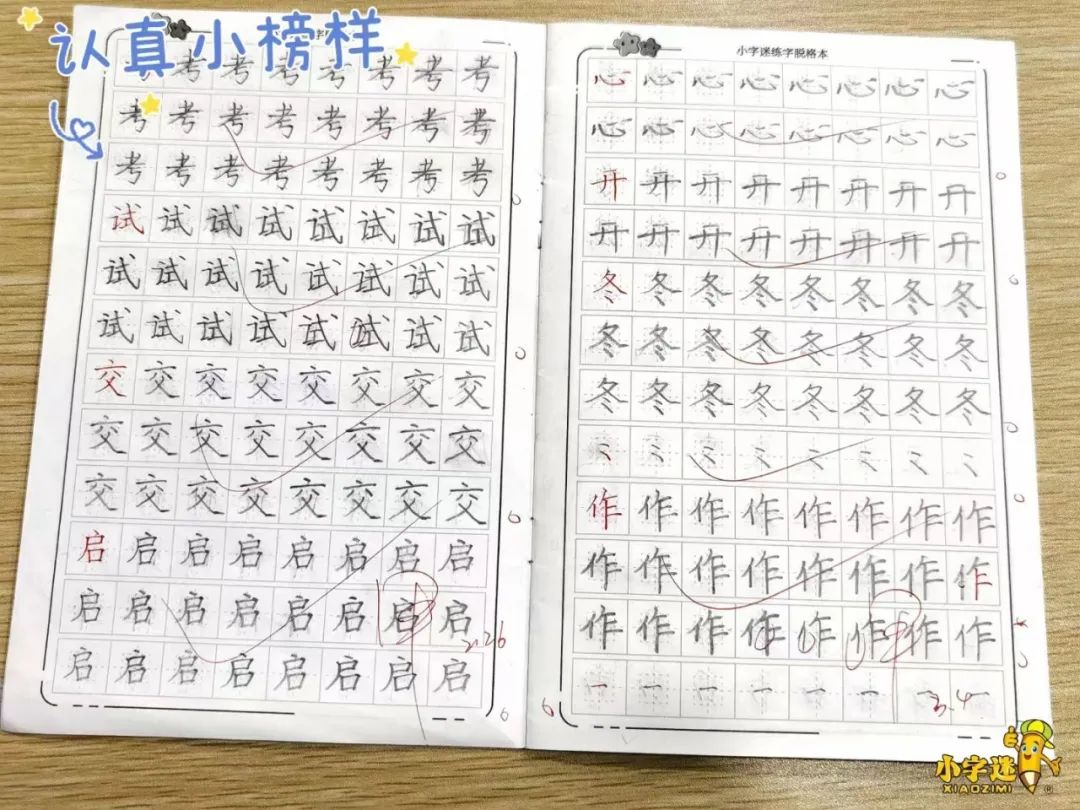 认真小榜样
考考考考考考考
考考考考考考考考
考考考考考考考考
试试试试试试试试
试试试试试试试试
试试试试试试试试
交交交交交交交交
交交交交交交交交
交交交交交交交交
启启启启启启启启
启启启启启启启启
2.26
启启启启启启启启
6
小字迷练字脱格本
心心心心心心心心
心心心心心心心心
开开开开开开开开
开开开开开开开开
冬冬冬冬冬冬冬冬
冬冬冬冬冬冬冬冬
冬冬冬冬冬冬冬冬
⺀⺀⺀⺀⺀⺀⺀⺀
作作作作作作作作
作作作作作作作作
作作作作作作作作
一一一一一一一一
3.4
6
小字迷
XIAOZIMI